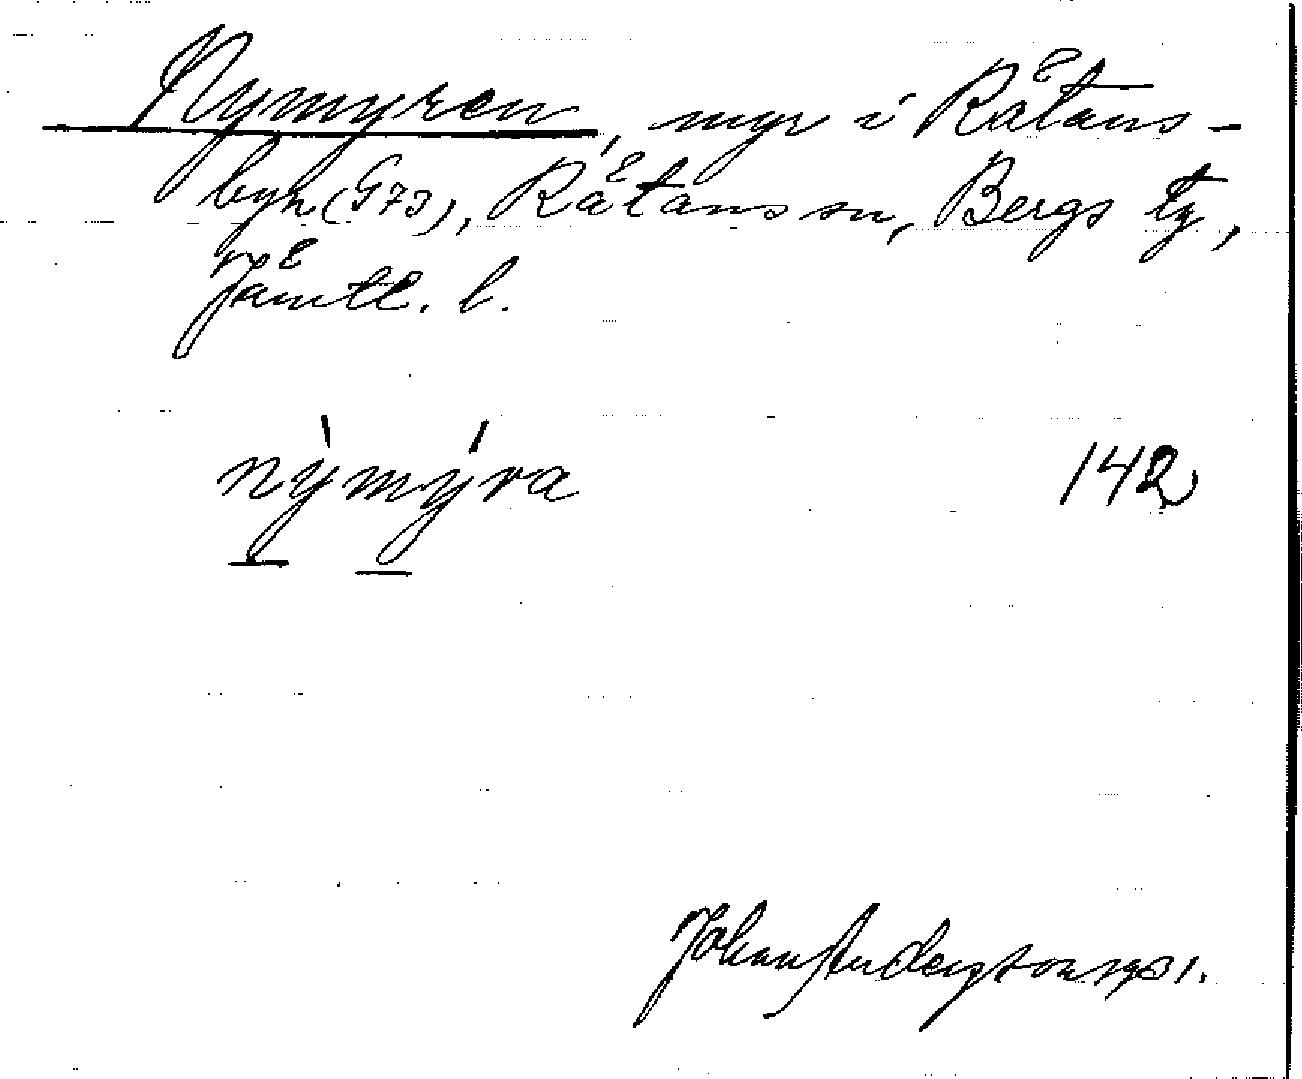 Nymyren, myr i Råtans-
byn (G73), Råtans sn, Bergs tg,
Jämtl. l.
nýmýra 142
Johan Anderzton 1931.